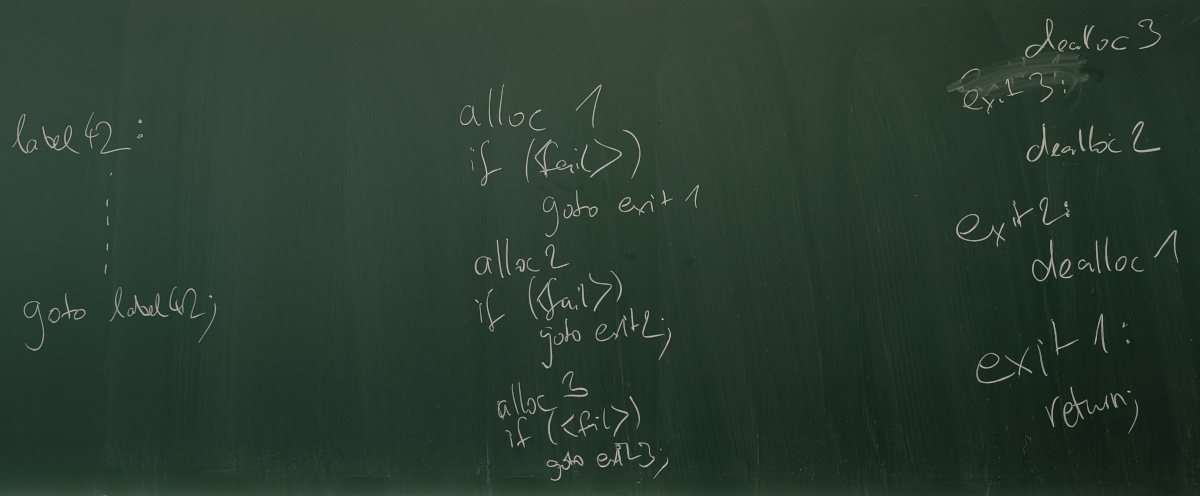 label42:
goto label42;
alloc 1
if (<fail>)
goto exit 1
alloc 2
if (<fail>)
goto exit2;
alloc 3
if (<fil>)
goto exit3;
dealloc 3
exit 3:
dealloc 2
exit 2:
dealloc 1
exit 1:
return;